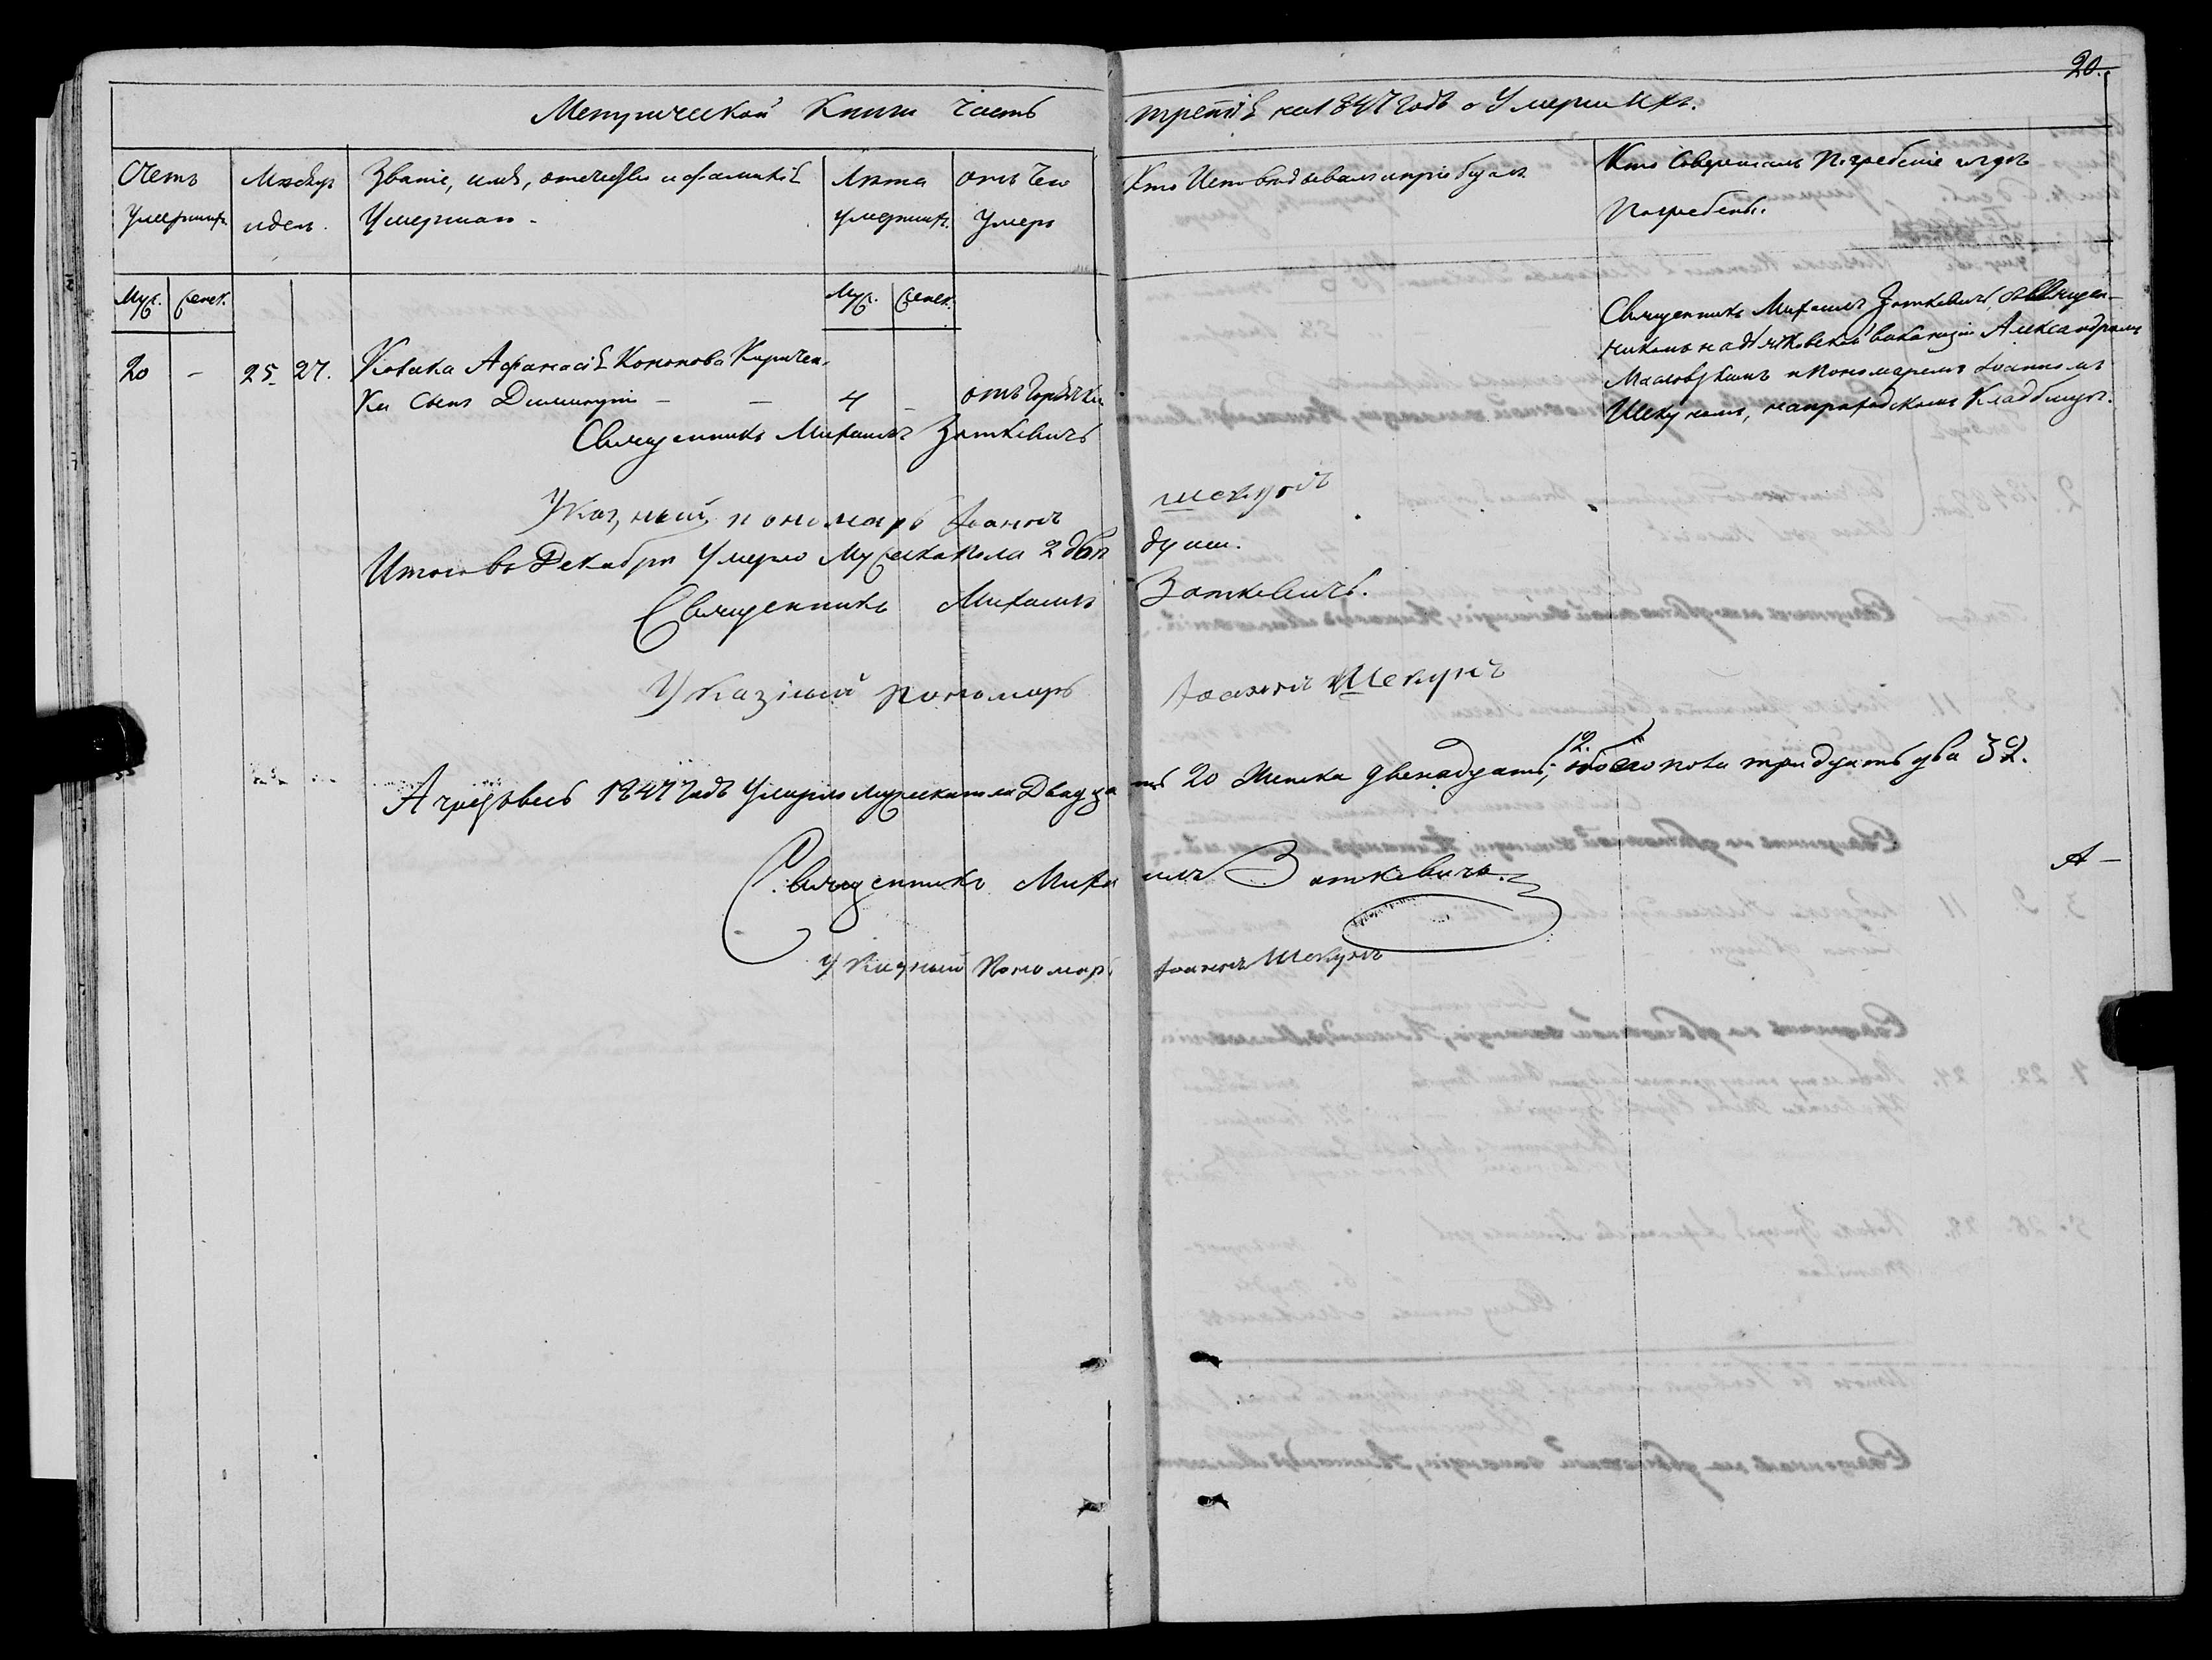 20.
Метрической Книги часть третія на 1847 годъ о Умершихъ.
Счетъ Умершихъ
Мѣсяцъ и день.
Званіе, имя, отечество и фамилія Умершаго.
Лѣта Умершихъ.
отъ чего Умеръ
Кто Исповѣдывалъ и пріобщалъ
Кто Совершалъ Погребеніе и гдѣ Погребены.
Муж. Женск.
Муж. Женск.
20 - 25. 27. Козака Афанасія Кононова Киричен-
ки Сынъ Димитрій - - 4 - отъ горячки
Священникъ Михаилъ Заткевичъ, съ Священ-
никомъ на дьячковской вакансіи Александромъ
Масловскимъ и Пономаремъ Іоанномъ
Шекуномъ, на приходскомъ Кладбищѣ.
Священникъ Михаилъ Заткевичъ
Указный пономарь Іоаннъ Шекунъ
Итого въ Декабрѣ Умерло Мужеска пола 2 двѣ души.
Священникъ Михаилъ Заткевичъ.
Указный пономарь Іоаннъ Шекунъ
А чрезъ весь 1847 годъ Умерло мужеска пола Двадцать 20 Женска двенадцать, 12. обоего пола тридцать два 32.
Священникъ Михаилъ Заткевичъ.
А -
Указный Пономарь Іоаннъ Шекунъ